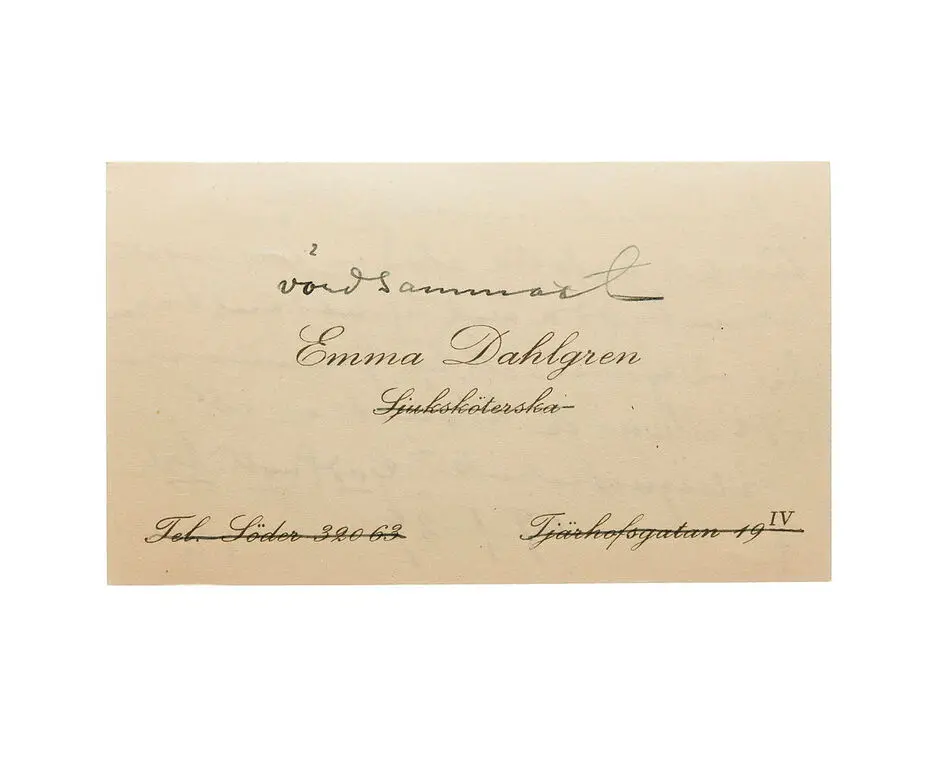 vördsammast
Emma Dahlgren
Sjuksköterska
Tel. Söder 320 63
Tjärhofsgatan 19 IV